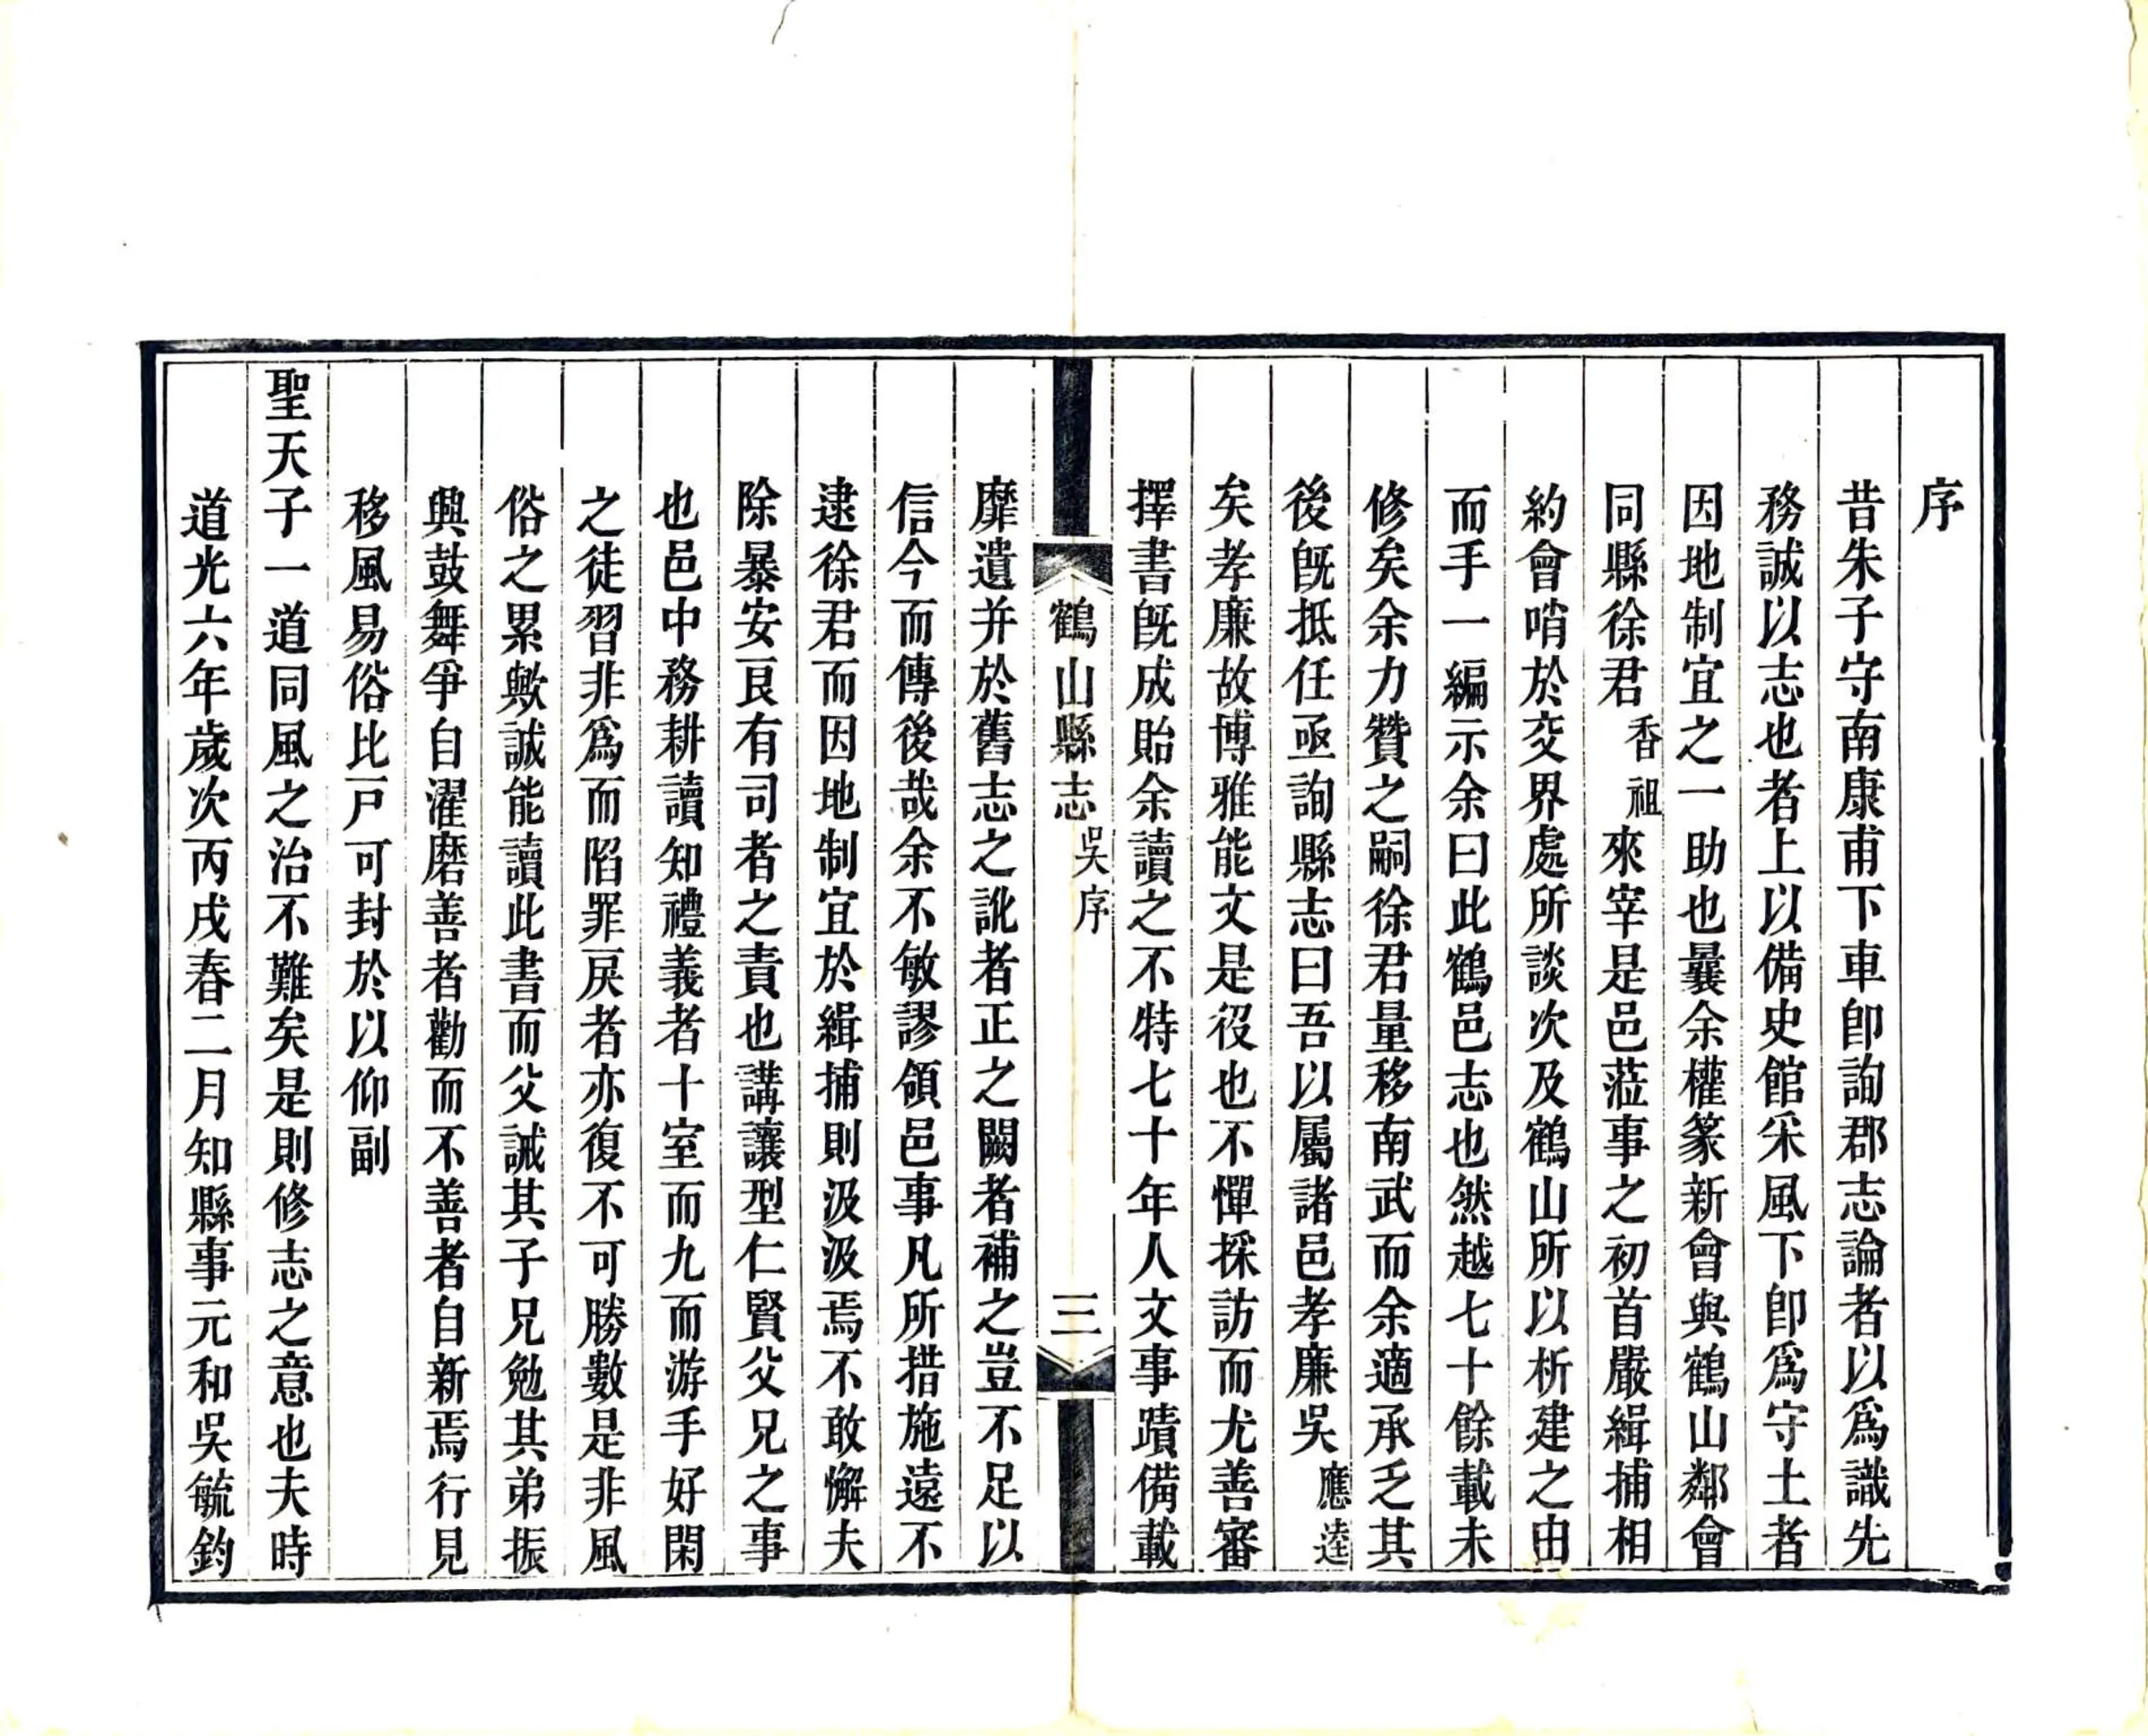 序
昔朱子守南康甫下車卽詢郡志論者以爲識先
務誠以志也者上以備史館采風下卽爲守土者
因地制宜之一助也曩余權篆新會與鶴山鄰會
同縣徐君香祖來宰是邑蒞事之初首嚴緝捕相
約會哨於交界處所談次及鶴山所以析建之由
而手一編示余曰此鶴邑志也然越七十餘載未
修矣余力贊之嗣徐君量移南武而余適承乏其
後旣抵任亟詢縣志曰吾以屬諸邑孝廉吳應逵
矣孝廉故博雅能文是役也不憚採訪而尤善審
擇書旣成貽余讀之不特七十年人文事蹟備載
鶴山縣志 吳序 三
靡遺并於舊志之訛者正之闕者補之豈不足以
信今而傳後哉余不敏謬領邑事凡所措施遠不
逮徐君而因地制宜於緝捕則汲汲焉不敢懈夫
除暴安良有司者之責也講讓型仁賢父兄之事
也邑中務耕讀知禮義者十室而九而游手好閑
之徒習非爲而陷罪戾者亦復不可勝數是非風
俗之累歟誠能讀此書而父誡其子兄勉其弟振
興鼓舞爭自濯磨善者勸而不善者自新焉行見
移風易俗比戸可封於以仰副
聖天子一道同風之治不難矣是則修志之意也夫時
道光六年歲次丙戌春二月知縣事元和吳毓鈞